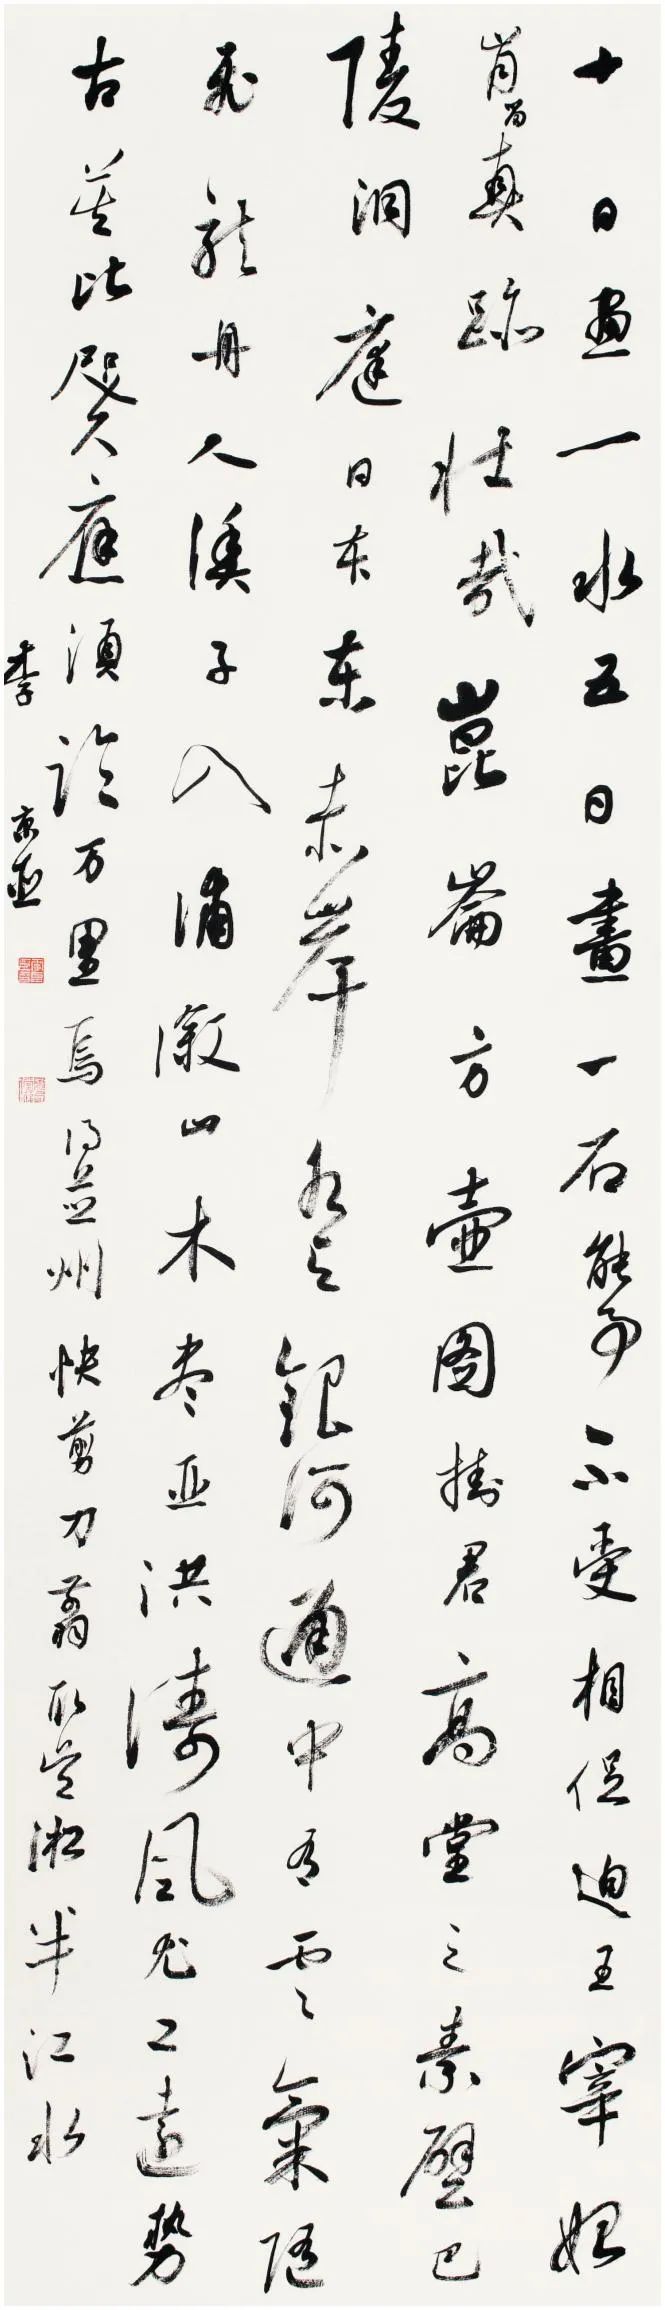 十日畫一水五日畫一石能事不受相促迫王宰始
肯留真跡壯哉崑崙方壺圖掛君高堂之素壁巴
陵洞庭日本東赤岸水與銀河通中有雲氣隨
飛龍舟人漁子入浦漵山木盡亞洪濤風尤工遠勢
古莫比咫尺應須論万里焉得並州快剪刀翦取吳淞半江水
李京